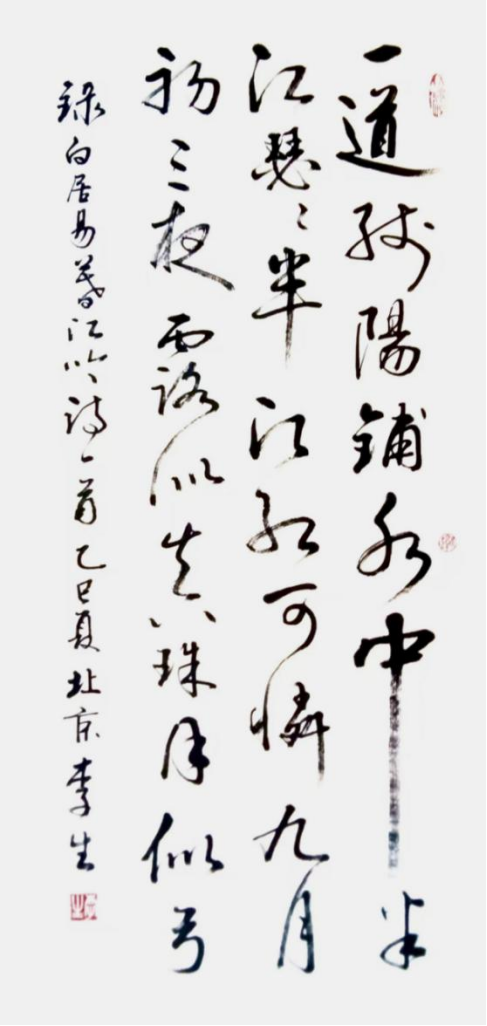 一道殘陽鋪水中半
江瑟〻半江紅可憐九月
初三夜露似真珠月似弓
錄白居易暮江吟詩一首乙巳夏北京李生